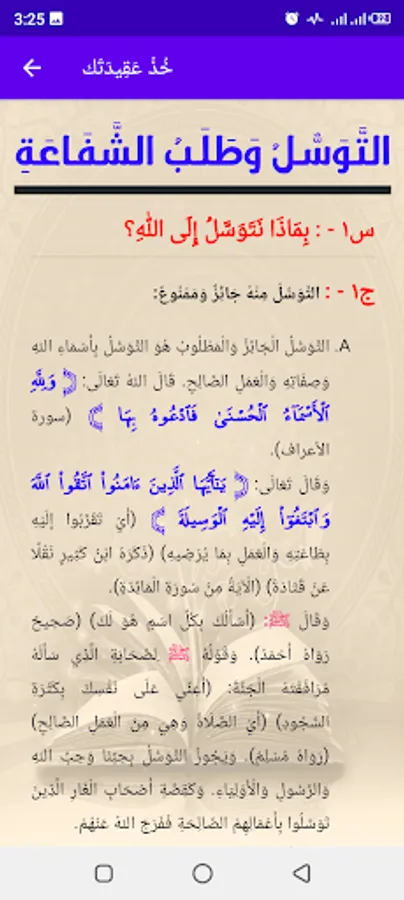 3:25
خُذْ عَقِيدَتَك
التَّوَسُّلُ وَطَلَبُ الشَّفَاعَةِ
س١ - : بِمَاذَا نَتَوَسَّلُ إِلَى اللهِ؟
ج١ - : التَّوَسُّلُ مِنْهُ جَائِزٌ وَمَمْنُوعٌ:
A. التَّوَسُّلُ الْجَائِزُ وَالْمَطْلُوبُ هُوَ التَّوَسُّلُ بِأَسْمَاءِ اللهِ
وَصِفَاتِهِ وَالْعَمَلِ الصَّالِحِ. قَالَ اللهُ تَعَالَى: ﴿ وَلِلَّهِ
ٱلْأَسْمَآءُ ٱلْحُسْنَىٰ فَٱدْعُوهُ بِهَا ﴾ (سورة
الأعراف).
وَقَالَ تَعَالَى: ﴿ يَٰٓأَيُّهَا ٱلَّذِينَ ءَامَنُوا۟ ٱتَّقُوا۟ ٱللَّهَ
وَٱبْتَغُوٓا۟ إِلَيْهِ ٱلْوَسِيلَةَ ﴾ (أَيْ تَقَرَّبُوا إِلَيْهِ
بِطَاعَتِهِ وَالْعَمَلِ بِمَا يُرْضِيهِ) (ذَكَرَهُ ابْنُ كَثِيرٍ نَقْلًا
عَنْ قَتَادَةَ) (الْآيَةُ مِنْ سُورَةِ الْمَائِدَةِ).
وَقَالَ ﷺ: (أَسْأَلُكَ بِكُلِّ اسْمٍ هُوَ لَكَ) (صَحِيحٌ
رَوَاهُ أَحْمَدُ). وَقَوْلُهُ ﷺ لِصَحَابَةِ الَّذِي سَأَلَهُ
مُرَافَقَتَهُ الْجَنَّةَ: (أَعِنِّي عَلَى نَفْسِكَ بِكَثْرَةِ
السُّجُودِ) (أَيِ الصَّلَاةُ وَهِيَ مِنَ الْعَمَلِ الصَّالِحِ)
(رَوَاهُ مُسْلِمٌ). وَيَجُوزُ التَّوَسُّلُ بِحُبِّنَا وَحُبِّ اللهِ
وَالرَّسُولِ وَالْأَوْلِيَاءِ. وَكَقِصَّةِ أَصْحَابِ الْغَارِ الَّذِينَ
تَوَسَّلُوا بِأَعْمَالِهِمُ الصَّالِحَةِ فَفَرَّجَ اللهُ عَنْهُمْ.